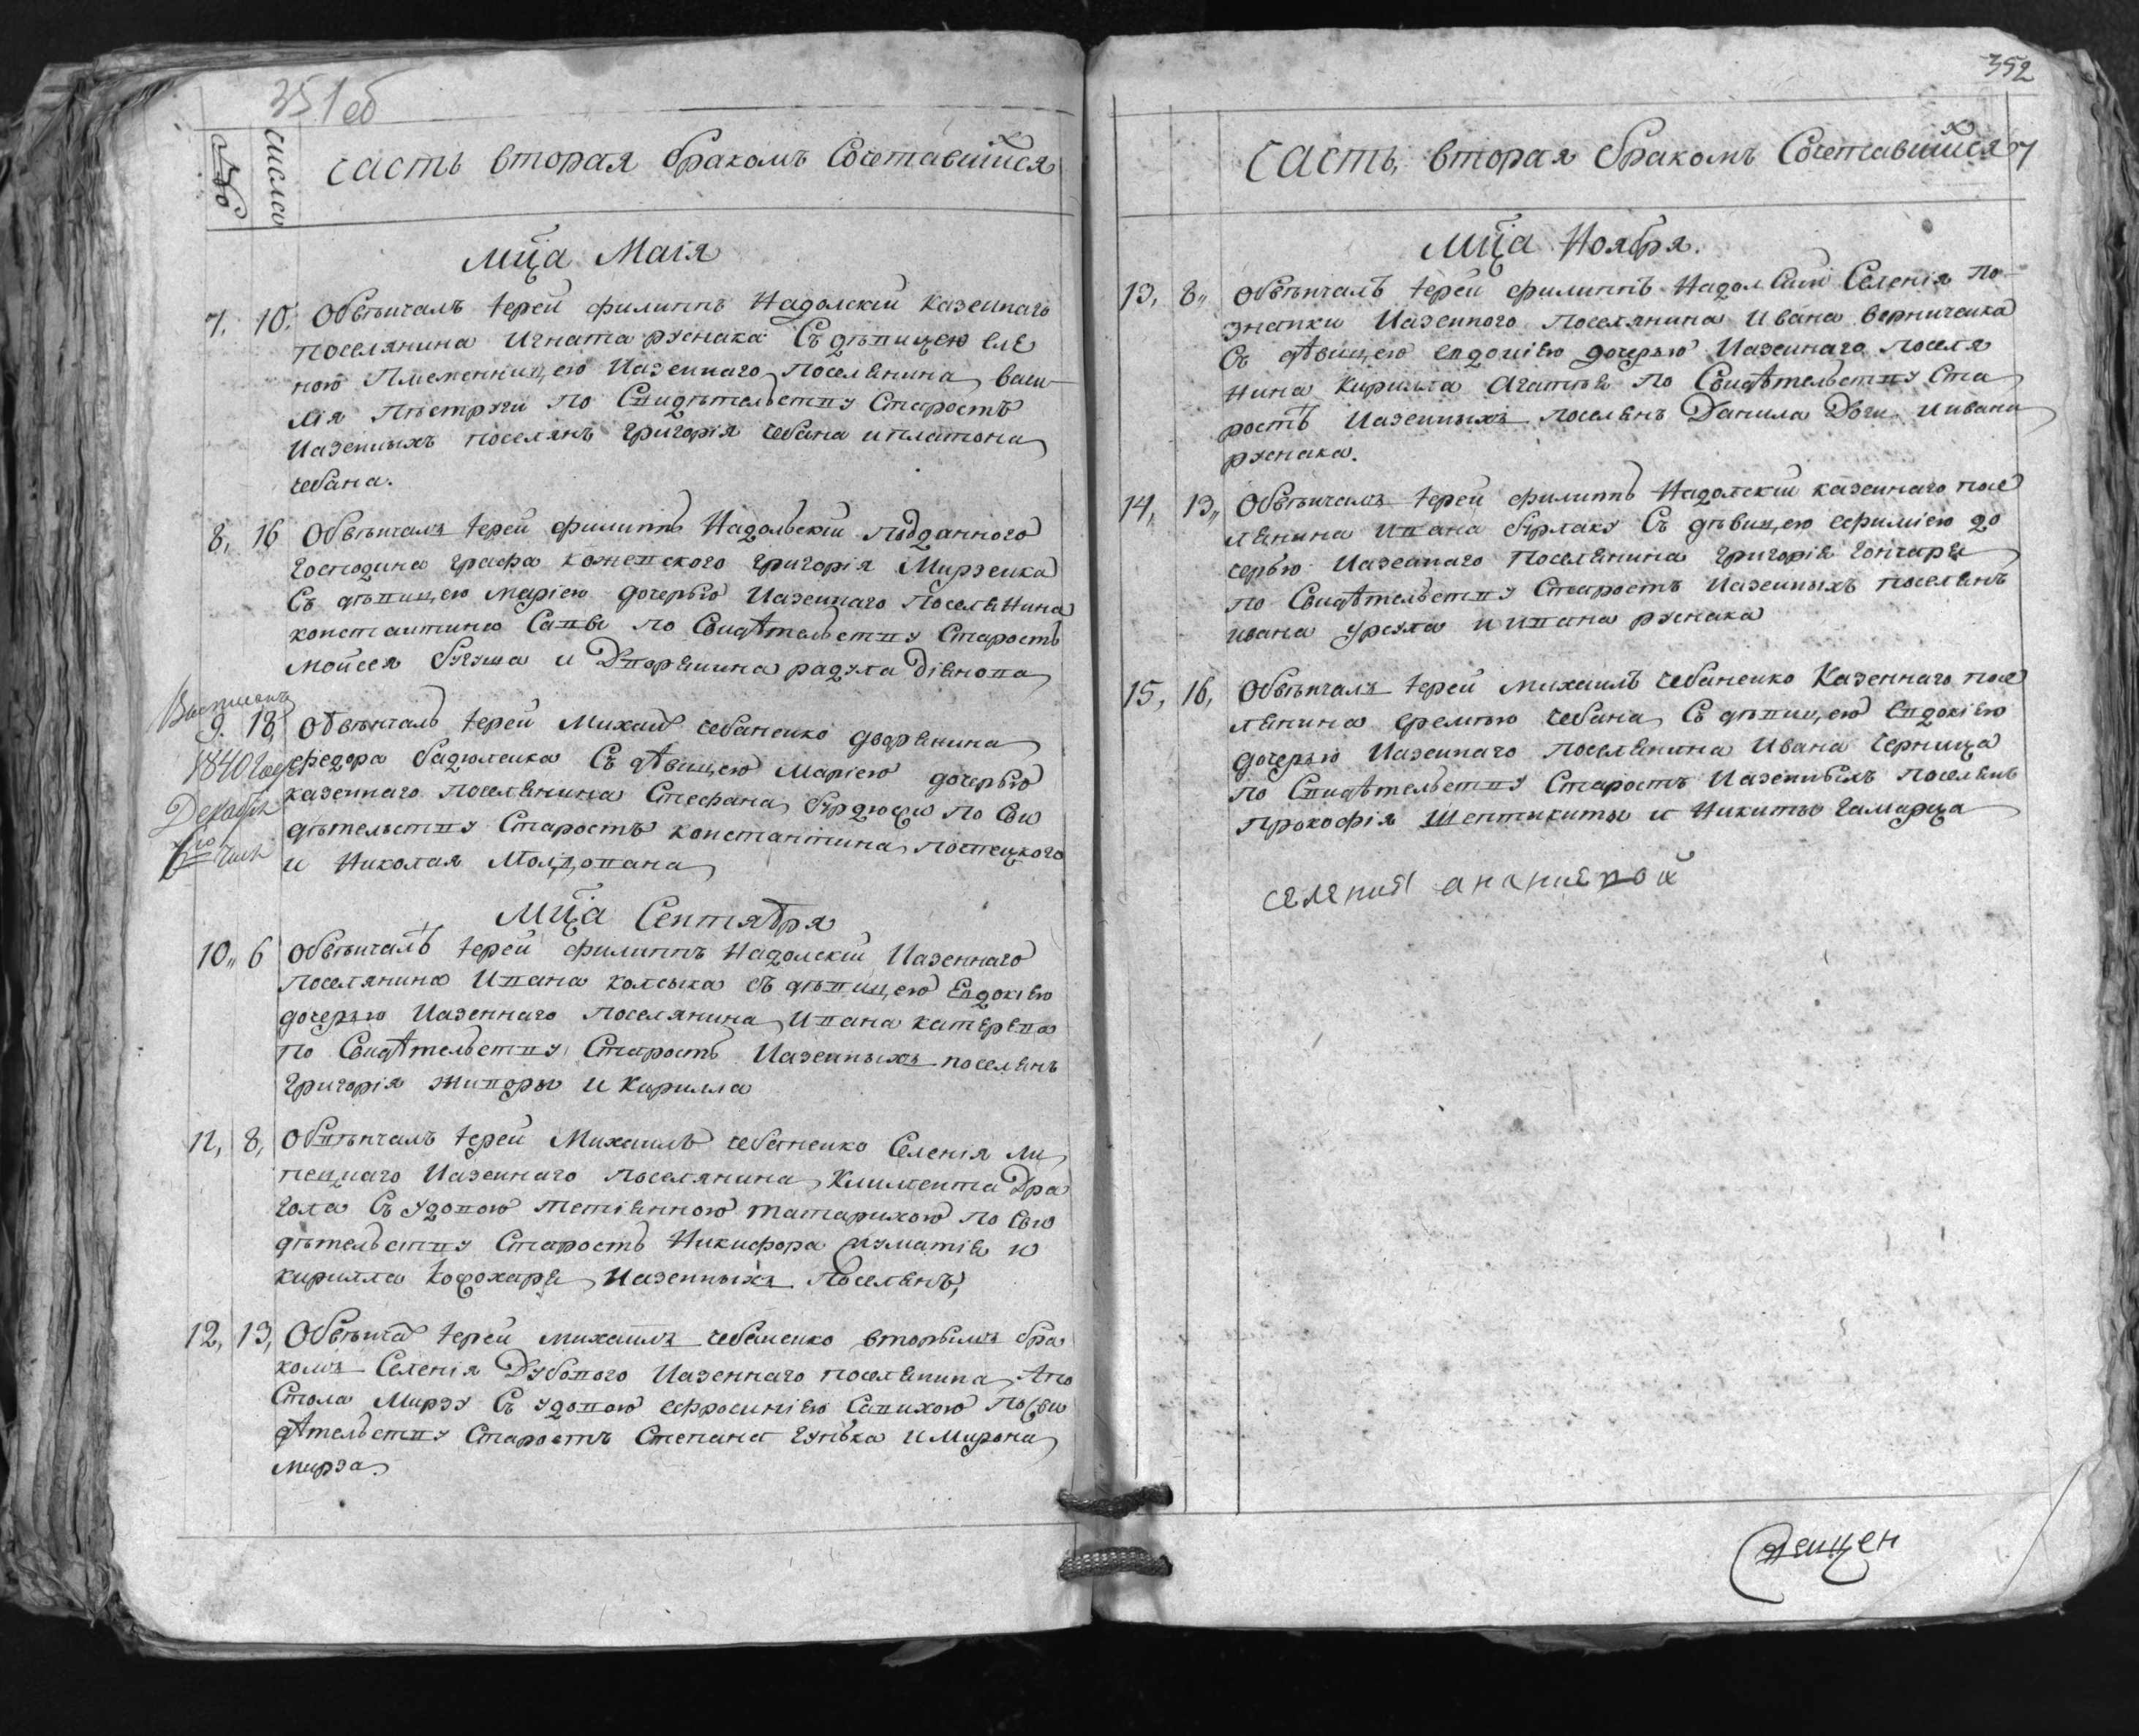 351об
№
число
часть вторая бракомъ Сочетавшихся
мца Маія
7. 10. Обвѣнчалъ Іерей филиппъ Надолскій казеннаго
поселянина Игната руснака Съ дѣвицею еле
ною племенницею казеннаго поселянина васи
лія Пѣструги по Свидѣтельству Старостъ
казенныхъ поселянъ григорія чебана и платона
чебана.
8, 16 Обвѣнчалъ Іерей филиппъ Надольскій подданного
господина графа григорія Мирзенка
Съ дѣвицею маріею дочерью казеннаго поселянина
константина Савы по Свидѣтельству Старостъ
мойсея бугуша и Дворянина радула
9. 18, Обвѣнчалъ Іерей Михаил чебаненко дворянина
федора бадюленка Съ дѣвицею Маріею дочерью
казеннаго поселянина Стефана бурдюжи по Сви
дѣтельству Старостъ константина
и Николая Молдована
1840 года
Декабря
7го чис
мца Сентября
10„ 6 Обвѣнчалъ Іерей филиппъ Надолскій казеннаго
поселянина Ивана колсыка съ дѣвицею Евдокіею
дочерью казеннаго поселянина Ивана катерева
по Свидѣтельству Старостъ казенныхъ поселянъ
григорія живоры и Кирилла
11, 8, Обвѣнчалъ Іерей Михаилъ чебаненко Селенія ли
пецкаго казеннаго поселянина Климента Дра
гола Съ удовою тетіянною татарихою по Сви
дѣтельству Старостъ Никифора и
кирилла казенныхъ поселянъ,
12, 13, Обвѣнча Іерей михаилъ чебаненко вторымъ бра
комъ Селенія Дубового казеннаго поселянина Апо
Стола Мирзу Съ удовою ефросиніею Савихою по Сви
дѣтельству Старостъ Степана и Мирона
мирза
352
часть, вторая бракомъ Сочетавшихся 7
мца Ноября.
13, 8„ Обвѣнчалъ Іерей филиппъ Надолскій Селенія по
знанки казенного поселянина ивана верниченка
Съ дѣвицею евдокіею дочерью казеннаго поселя
нина Кирилла Агатьи по Свидѣтельству Ста
ростъ казенныхъ поселянъ Данила и ивана
руснака.
14, 13„ Обвѣнчалъ Іерей филиппъ Надолскій казеннаго посе
лянина ивана бурлаку Съ дѣвицею ефиміею до
черью казеннаго поселянина григорія гончаря
по Свидѣтельству Старостъ казенныхъ поселянъ
ивана урсула и ивана руснака
15, 16, Обвѣнчалъ Іерей михаилъ чебаненко Казеннаго посе
лянина еремѣю чебана Съ дѣвицею Евдокіею
дочерью казеннаго поселянина Ивана черница
по Свидѣтельству Старостъ казенныхъ поселянъ
прокофія шептикиты и Никиты гамарца
селения ананиевой